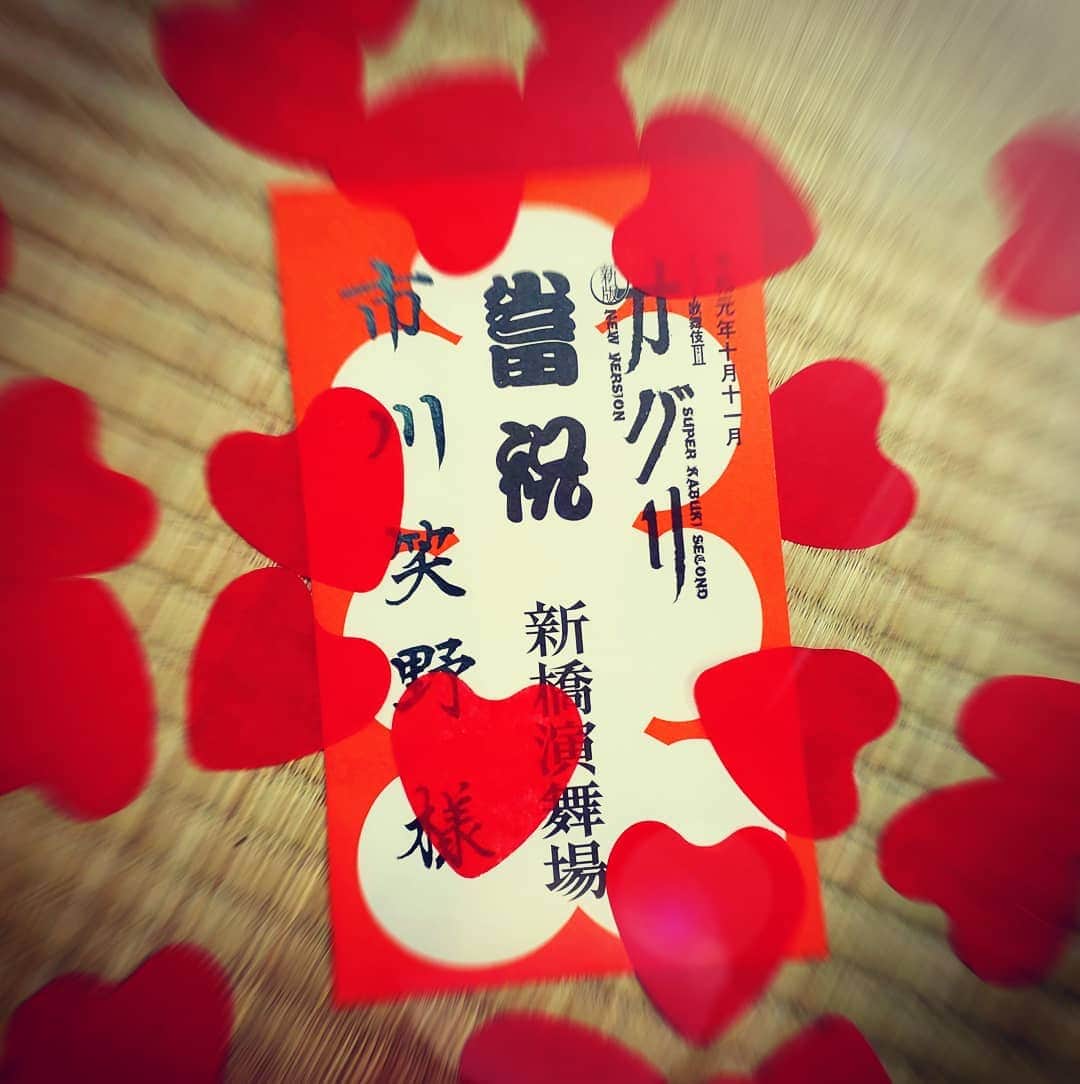 元年十月十一月
歌舞伎II
SUPER KABUKI SECOND
オグリ
新版
NEW VERSION
當祝
新橋演舞場
市川笑野様